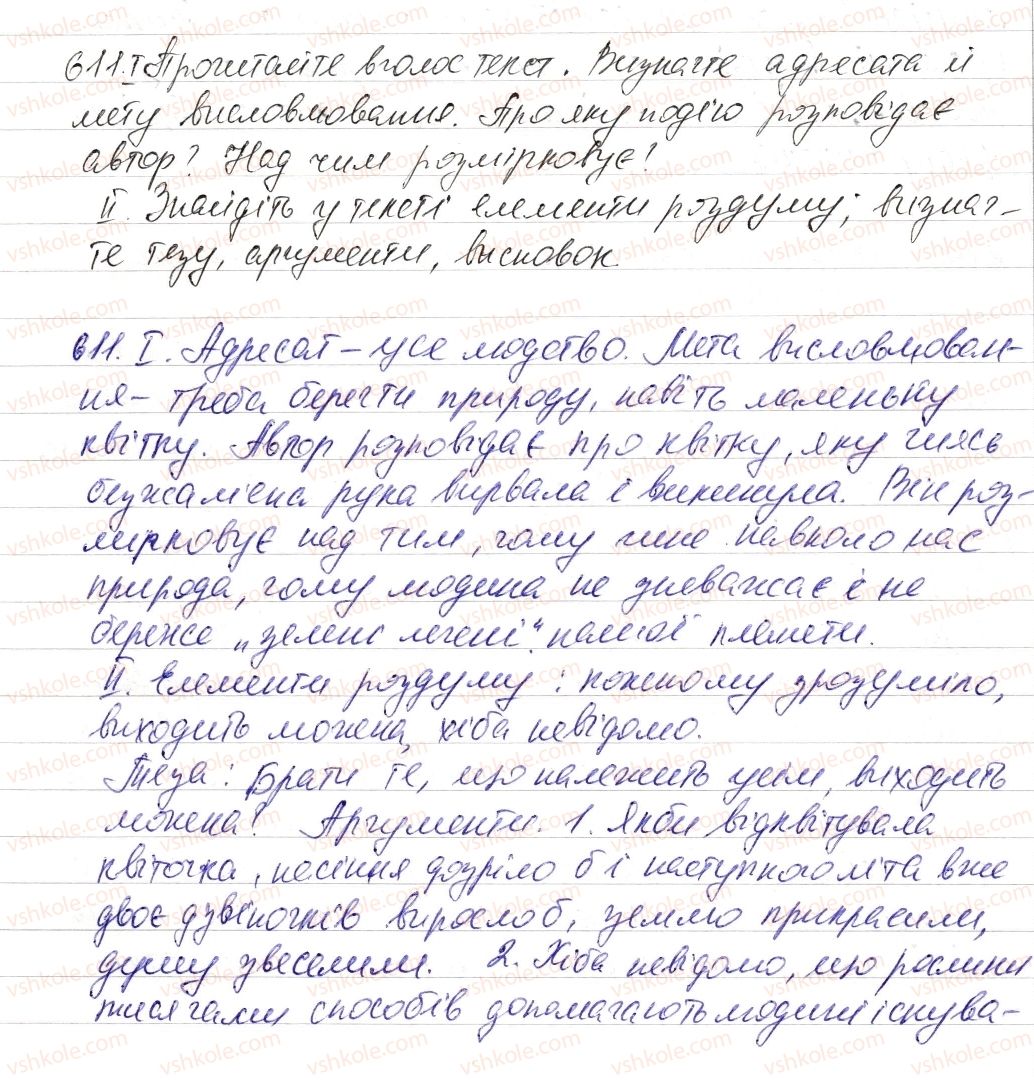 611. І Прочитайте вголос текст. Визначте адресата й
мету висловлювання. Про яку подію розповідає
автор? Над чим розмірковує?
ІІ. Знайдіть у тексті елементи роздуму; визнач-
те тезу, аргументи, висновок.
611. І. Адресат – усе людство. Мета висловлюван-
ня – треба берегти природу, навіть маленьку
квітку. Автор розповідає про квітку, яку чиясь
безжалісна рука вирвала і викинула. Він роз-
мірковує над тим, чому гине навколо нас
природа, чому людина не зневажає і не
береже „зелені легені" нашої планети.
ІІ. Елементи роздуму: кожному зрозуміло,
виходить можна, хіба невідомо.
Теза: Брати те, що належить усім, виходить
можна! Аргументи. 1. Якби відквітувала
квіточка, насіння дозріло б і наступного літа вже
двоє дзвіночків виросло б, землю прикрасили,
душу звеселили. 2. Хіба невідомо, що рослини
тисячами способів допомагають людині існува-